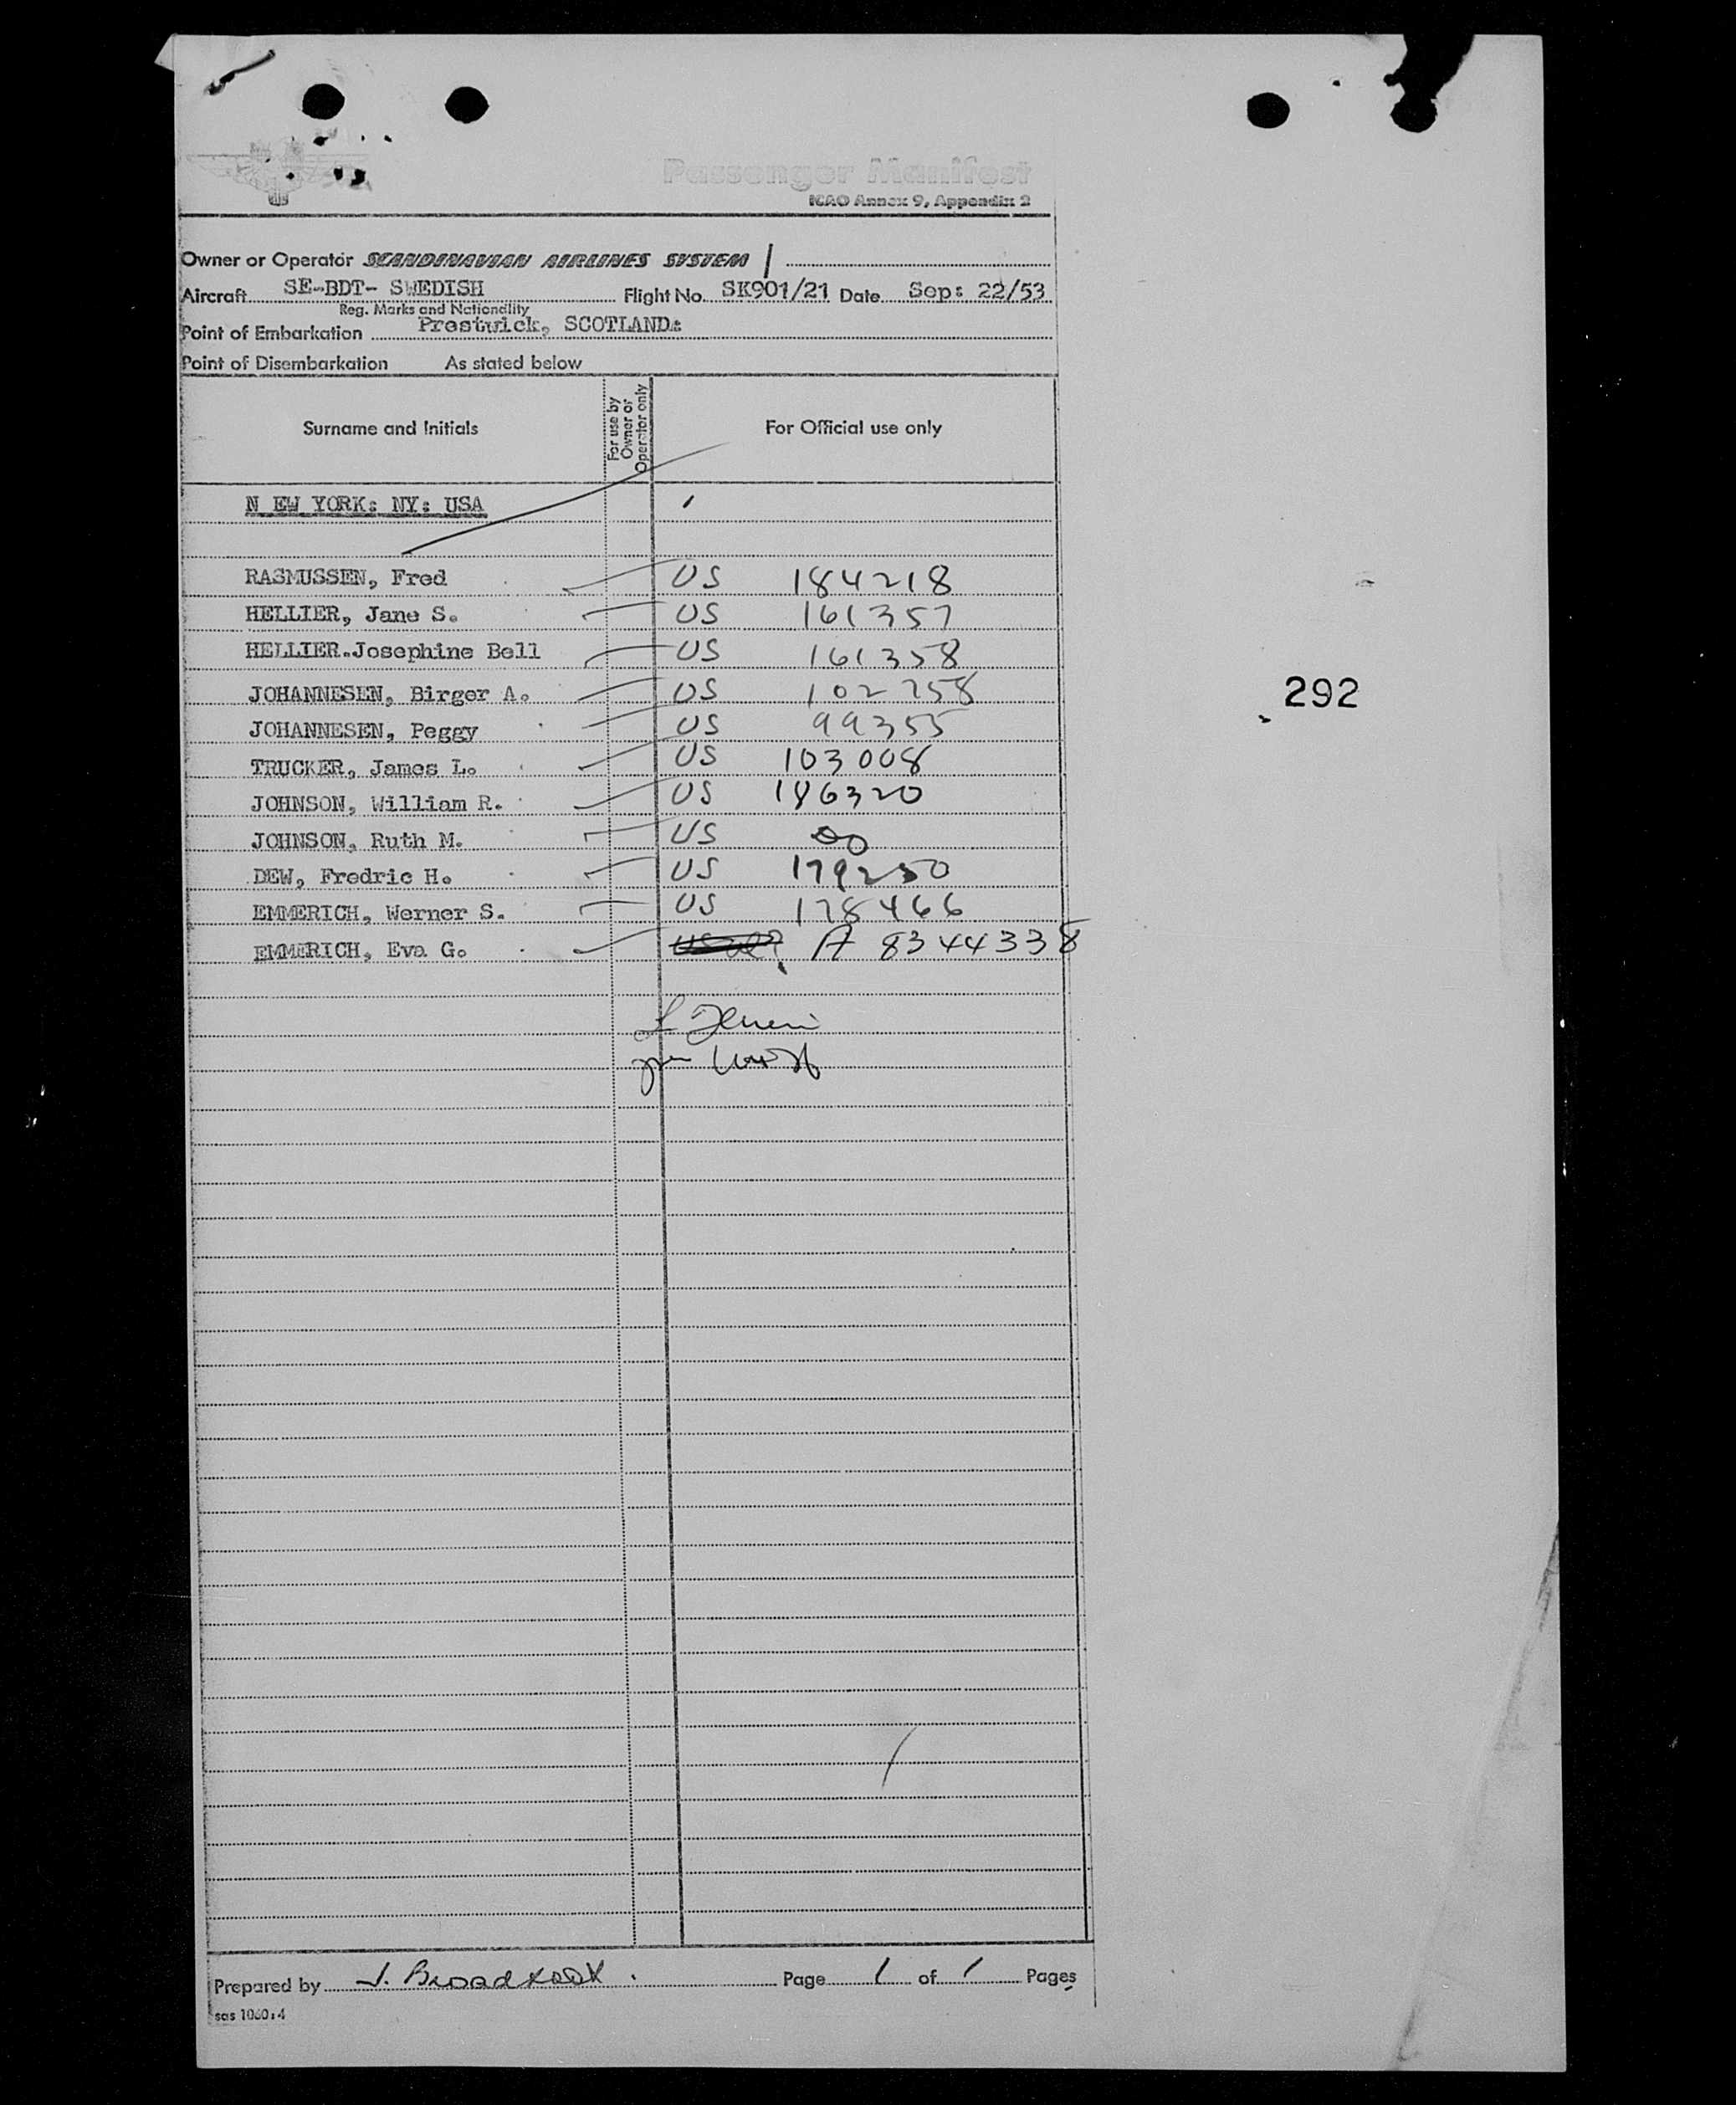 Passenger Manifest
ICAO Annex 9, Appendix 2
Owner or Operator SCANDINAVIAN AIRLINES SYSTEM
Aircraft SE-BDT- SWEDISH Flight No. SK901/21 Date Sep: 22/53
Reg. Marks and Nationality
Point of Embarkation Prestwick, SCOTLAND:
Point of Disembarkation As stated below
Surname and Initials For use by Owner or Operator only For Official use only
N EW YORK: NY: USA
RASMUSSEN, Fred US 184218
HELLIER, Jane S. US 161357
HELLIER.Josephine Bell US 161358
JOHANNESEN, Birger A. US 102258
JOHANNESEN, Peggy US 99355
TRUCKER, James L. US 103008
JOHNSON, William R. US 186320
JOHNSON, Ruth M. US
DEW, Fredric H. US 179250
EMMERICH, Werner S. US 178466
EMMERICH, Eva G. A 8344338
292
Prepared by J. Page 1 of 1 Pages
sas 1060:4